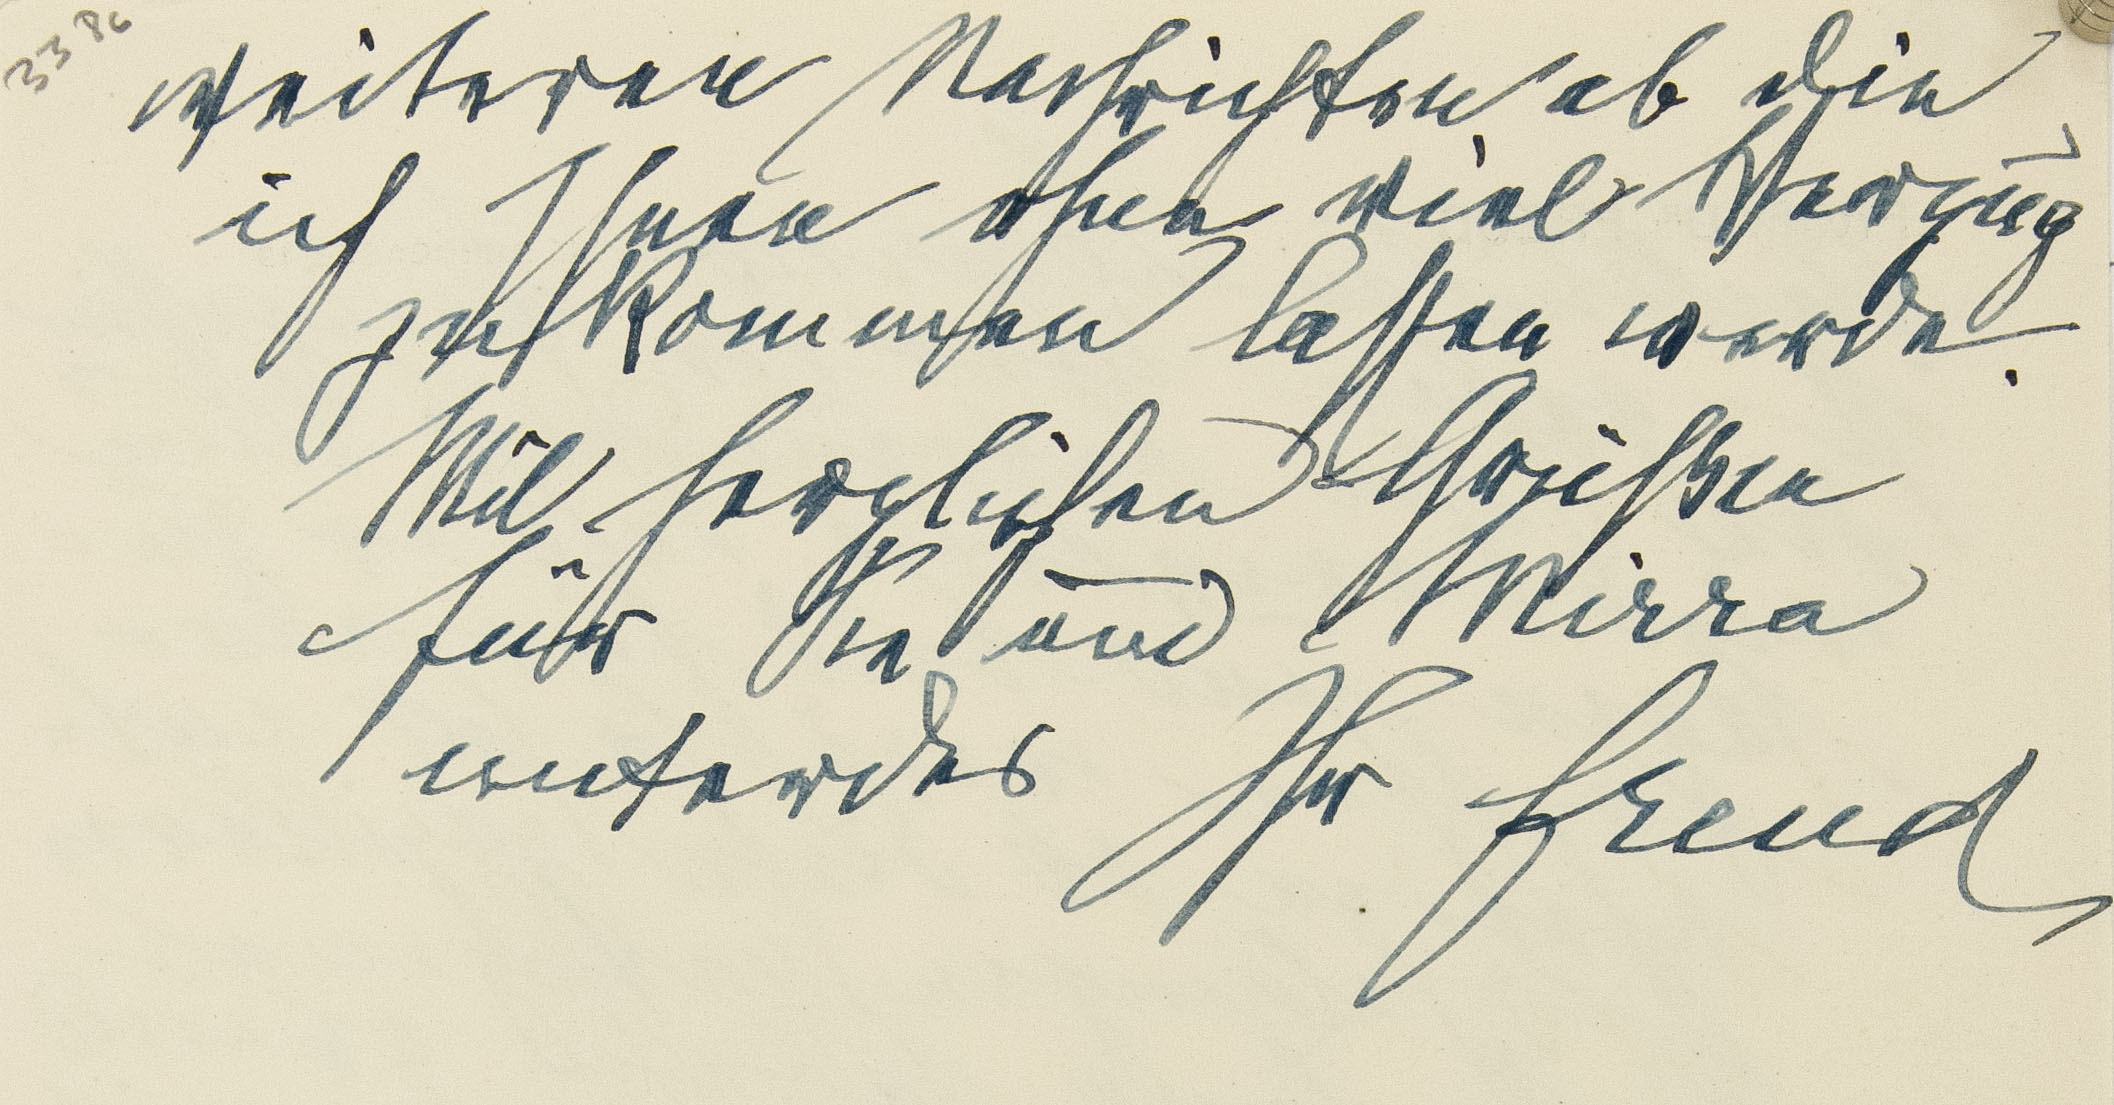 33 86
weiteren Nachrichten ab die
ich Ihnen ohne viel Verzug
zukommen lassen werde.
Mit herzlichen Grüßen
für Sie und Mirra
unterdes Ihr Freud